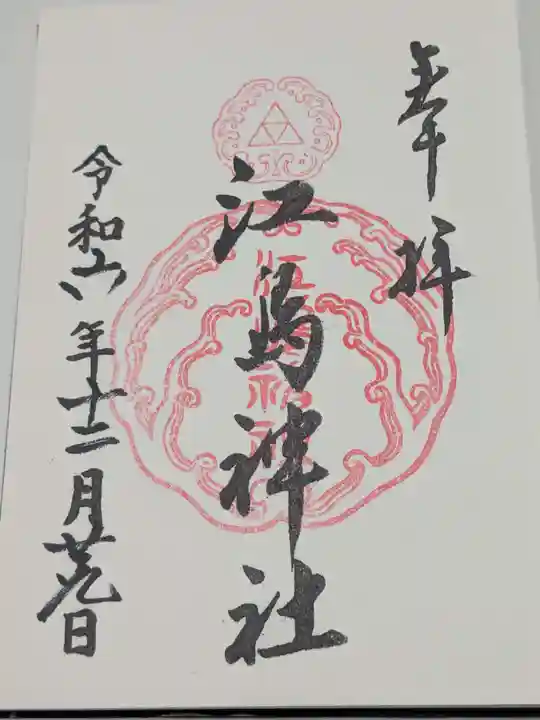 奉拝
江島神社
江島神社
令和六年十二月廿九日